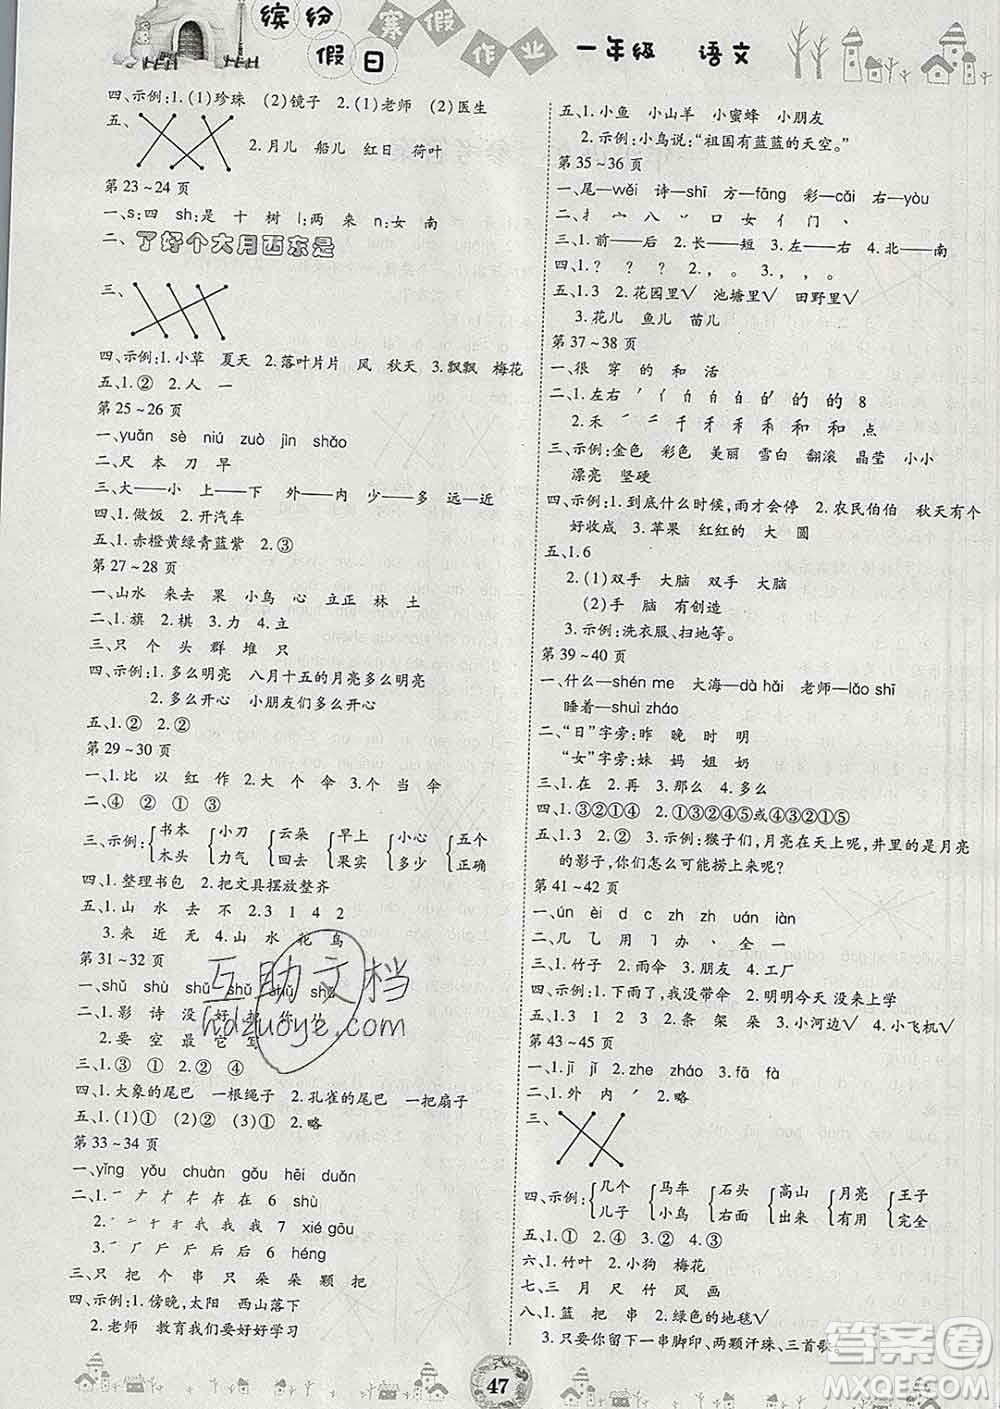 缤纷假日 寒假作业 一年级 语文
四、示例:1.(1)珍珠 (2)镜子 2.(1)老师 (2)医生
五、
2.月儿 船儿 红日 荷叶
第23~24页
一、s:四 sh:是 十 树 l:两 来 n:女 南
二、了好个大月西东是
三、
四、示例:1.小草 夏天 2.落叶片片 风 秋天 3.飘飘 梅花
五、1.② 2.人 一
第25~26页
一、yuǎn sè niú zuò jìn shǎo
二、尺 本 刀 早
三、大——小 上——下 外——内 少——多 远—近
四、1.做饭 2.开汽车
五、1.赤橙黄绿青蓝紫 2.③
第27~28页
一、山水 来去 果 小鸟 心 立正 林 土
二、1.旗 2.棋 3.力 4.立
三、只 个 头 群 堆 只
四、示例:1.多么明亮 八月十五的月亮多么明亮
2.多么开心 小朋友们多么开心
五、1.② 2.②
第29~30页
一、1.比 以 红 作 2.大 个 伞 3.个 当 伞
二、④ ② ① ③
三、示例: 书本 小刀 云朵 早上 小心 五个
木头 力气 回去 果实 多少 正确
四、1.整理书包 2.把文具摆放整齐
五、1.山 水 去 不 2.3 1 4 2
3.来 近 无 4.山 水 花 鸟
第31~32页
一、shǔ shù shǔ shǔ
二、1.影 诗 没 好 你
2.要 空 最 它
三、1.③ ① 2.② ①
四、1.大象的尾巴 一根绳子 2.孔雀的尾巴 一把扇子
五、1.(1)① (2)② (3)① 2.略
第33~34页
一、yǐng yǒu chuàn gǒu hēi duǎn
二、1.一 ナ 才 右 在 在 6 shù
2.㇒ 二 千 手 我 我 我 7 xié gōu
3.㇒ 厂 斤 后 后 6 héng
三、只 把 个 串 只 朵 朵 颗 把
四、示例:1.傍晚,太阳 西山落下
2.老师 教育我们要好好学习
五、1.小鱼 小山羊 小蜜蜂 小朋友
2.示例:小鸟说:“祖国有蓝蓝的天空。”
第35~36页
一、尾—wěi 诗—shī 方—fāng 彩—cǎi 右—yòu
二、扌 宀 八 口 女 亻 门 、
三、1.前——后 2.长——短 3.左——右 4.北—南
四、1.? ? ? 2., 。 3., 。
五、1.3 2.花园里√ 池塘里√ 田野里√
3.花儿 鱼儿 苗儿
第37~38页
一、很 穿 的 和 活
二、1.左右 ㇒ 亻 白 白 白 白' 的 的 8
2.禾 ㇒ 二 千 禾 禾 和 和 和 点
三、示例:金色 彩色 美丽 雪白 翻滚 晶莹 小小
漂亮 坚硬
四、示例:1.到底什么时候,雨才会停 2.农民伯伯 秋天有个
好收成 3.苹果 红红的 大 圆
五、1.6
2.(1)双手 大脑 双手 大脑
(2)手 脑 有创造
3.示例:洗衣服、扫地等。
第39~40页
一、什么—shén me 大海—dà hǎi 老师—lǎo shī
睡着—shuì zháo
二、“日”字旁:昨 晚 时 明
“女”字旁:妹 妈 姐 奶
三、1.在 2.再 3.那么 4.多么
四、1.③②①④ 2.①③②④⑤或④③②①⑤
五、1.3 2.② 3.示例:猴子们,月亮在天上呢,井里的是月亮
的影子,你们怎么可能捞上来呢?
第41~42页
一、ún èi d c zh zh uán iàn
二、几 乙 用 丁 办 、 全 一
三、1.竹子 2.雨伞 3.朋友 4.工厂
四、示例:1.下雨了,我没带伞 2.明明今天 没来上学
五、1.3 1 2 2.条 架 朵 3.小河边√ 4.小飞机√
第43~45页
一、1.jǐ jī 2.zhe zháo 3.fā fà
二、1.外 内 ㇒ 2.略
三、
四、示例: 几个 马车 石头 高山 月亮 王子
儿子 小鸟 右面 出来 有用 完全
五、1.① 2.③ 3.② 4.③
六、1.竹叶 2.小狗 梅花
七、三 月 尺 竹 风 画
八、1.篮 把 串 2.绿色的地毯√
3.只要你留下一串脚印、两颗汗珠、三首歌。
47
互助文档
hdzuoye.com
答案圈
MXQE.COM